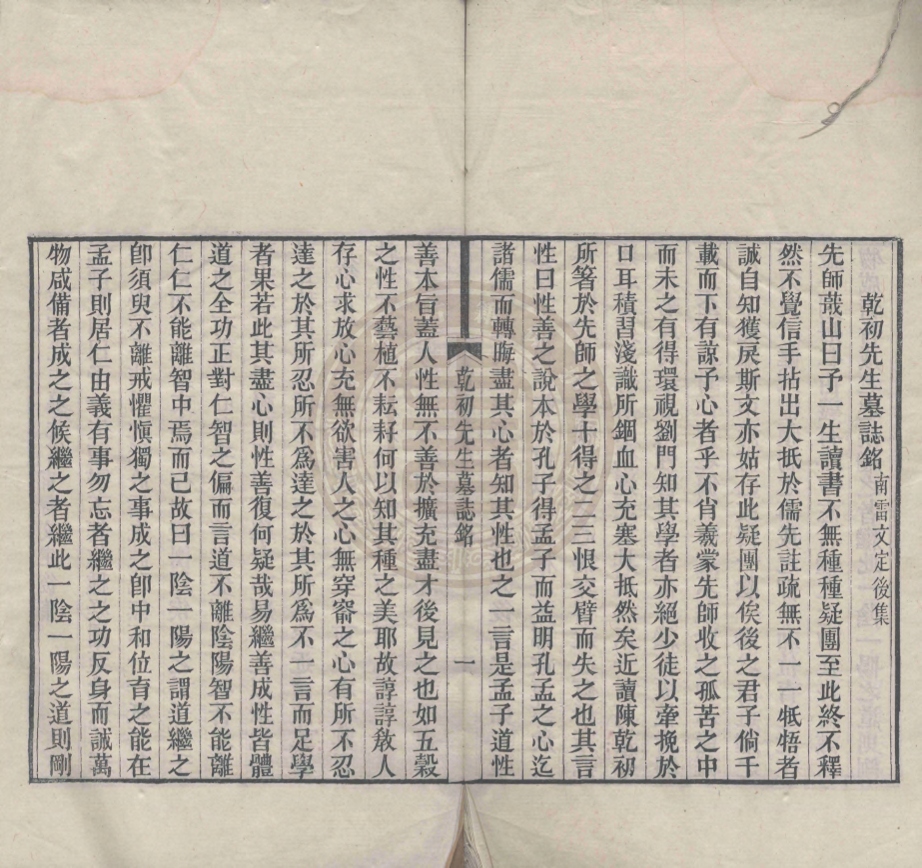 乾初先生墓誌銘 南雷文定後集
先師蕺山曰予一生讀書不無種種疑團至此終不釋
然不覺信手拈出大抵於儒先註疏無不一一牴牾者
誠自知獲戾斯文亦姑存此疑團以俟後之君子倘千
載而下有諒予心者乎不肖羲蒙先師收之孤苦之中
而未之有得環視劉門知其學者亦絕少徒以牽挽於
口耳積習淺識所錮血心充塞大抵然矣近讀陳乾初
所著於先師之學十得之二三恨交臂而失之也其言
性曰性善之說本於孔子得孟子而益明孔孟之心迄
諸儒而轉晦盡其心者知其性也之一言是孟子道性
乾初先生墓誌銘 一
善本旨蓋人性無不善於擴充盡才後見之也如五穀
之性不藝植不耘耔何以知其種之美耶故諄諄教人
存心求放心充無欲害人之心無穿窬之心有所不忍
達之於其所忍所不爲達之於其所爲不一言而足學
者果若此其盡心則性善復何疑哉易繼善成性皆體
道之全功正對仁智之偏而言道不離陰陽智不能離
仁仁不能離智中焉而已故曰一陰一陽之謂道繼之
卽須臾不離戒懼愼獨之事成之卽中和位育之能在
孟子則居仁由義有事勿忘者繼之之功反身而誠萬
物咸備者成之之候繼之者繼此一陰一陽之道則剛